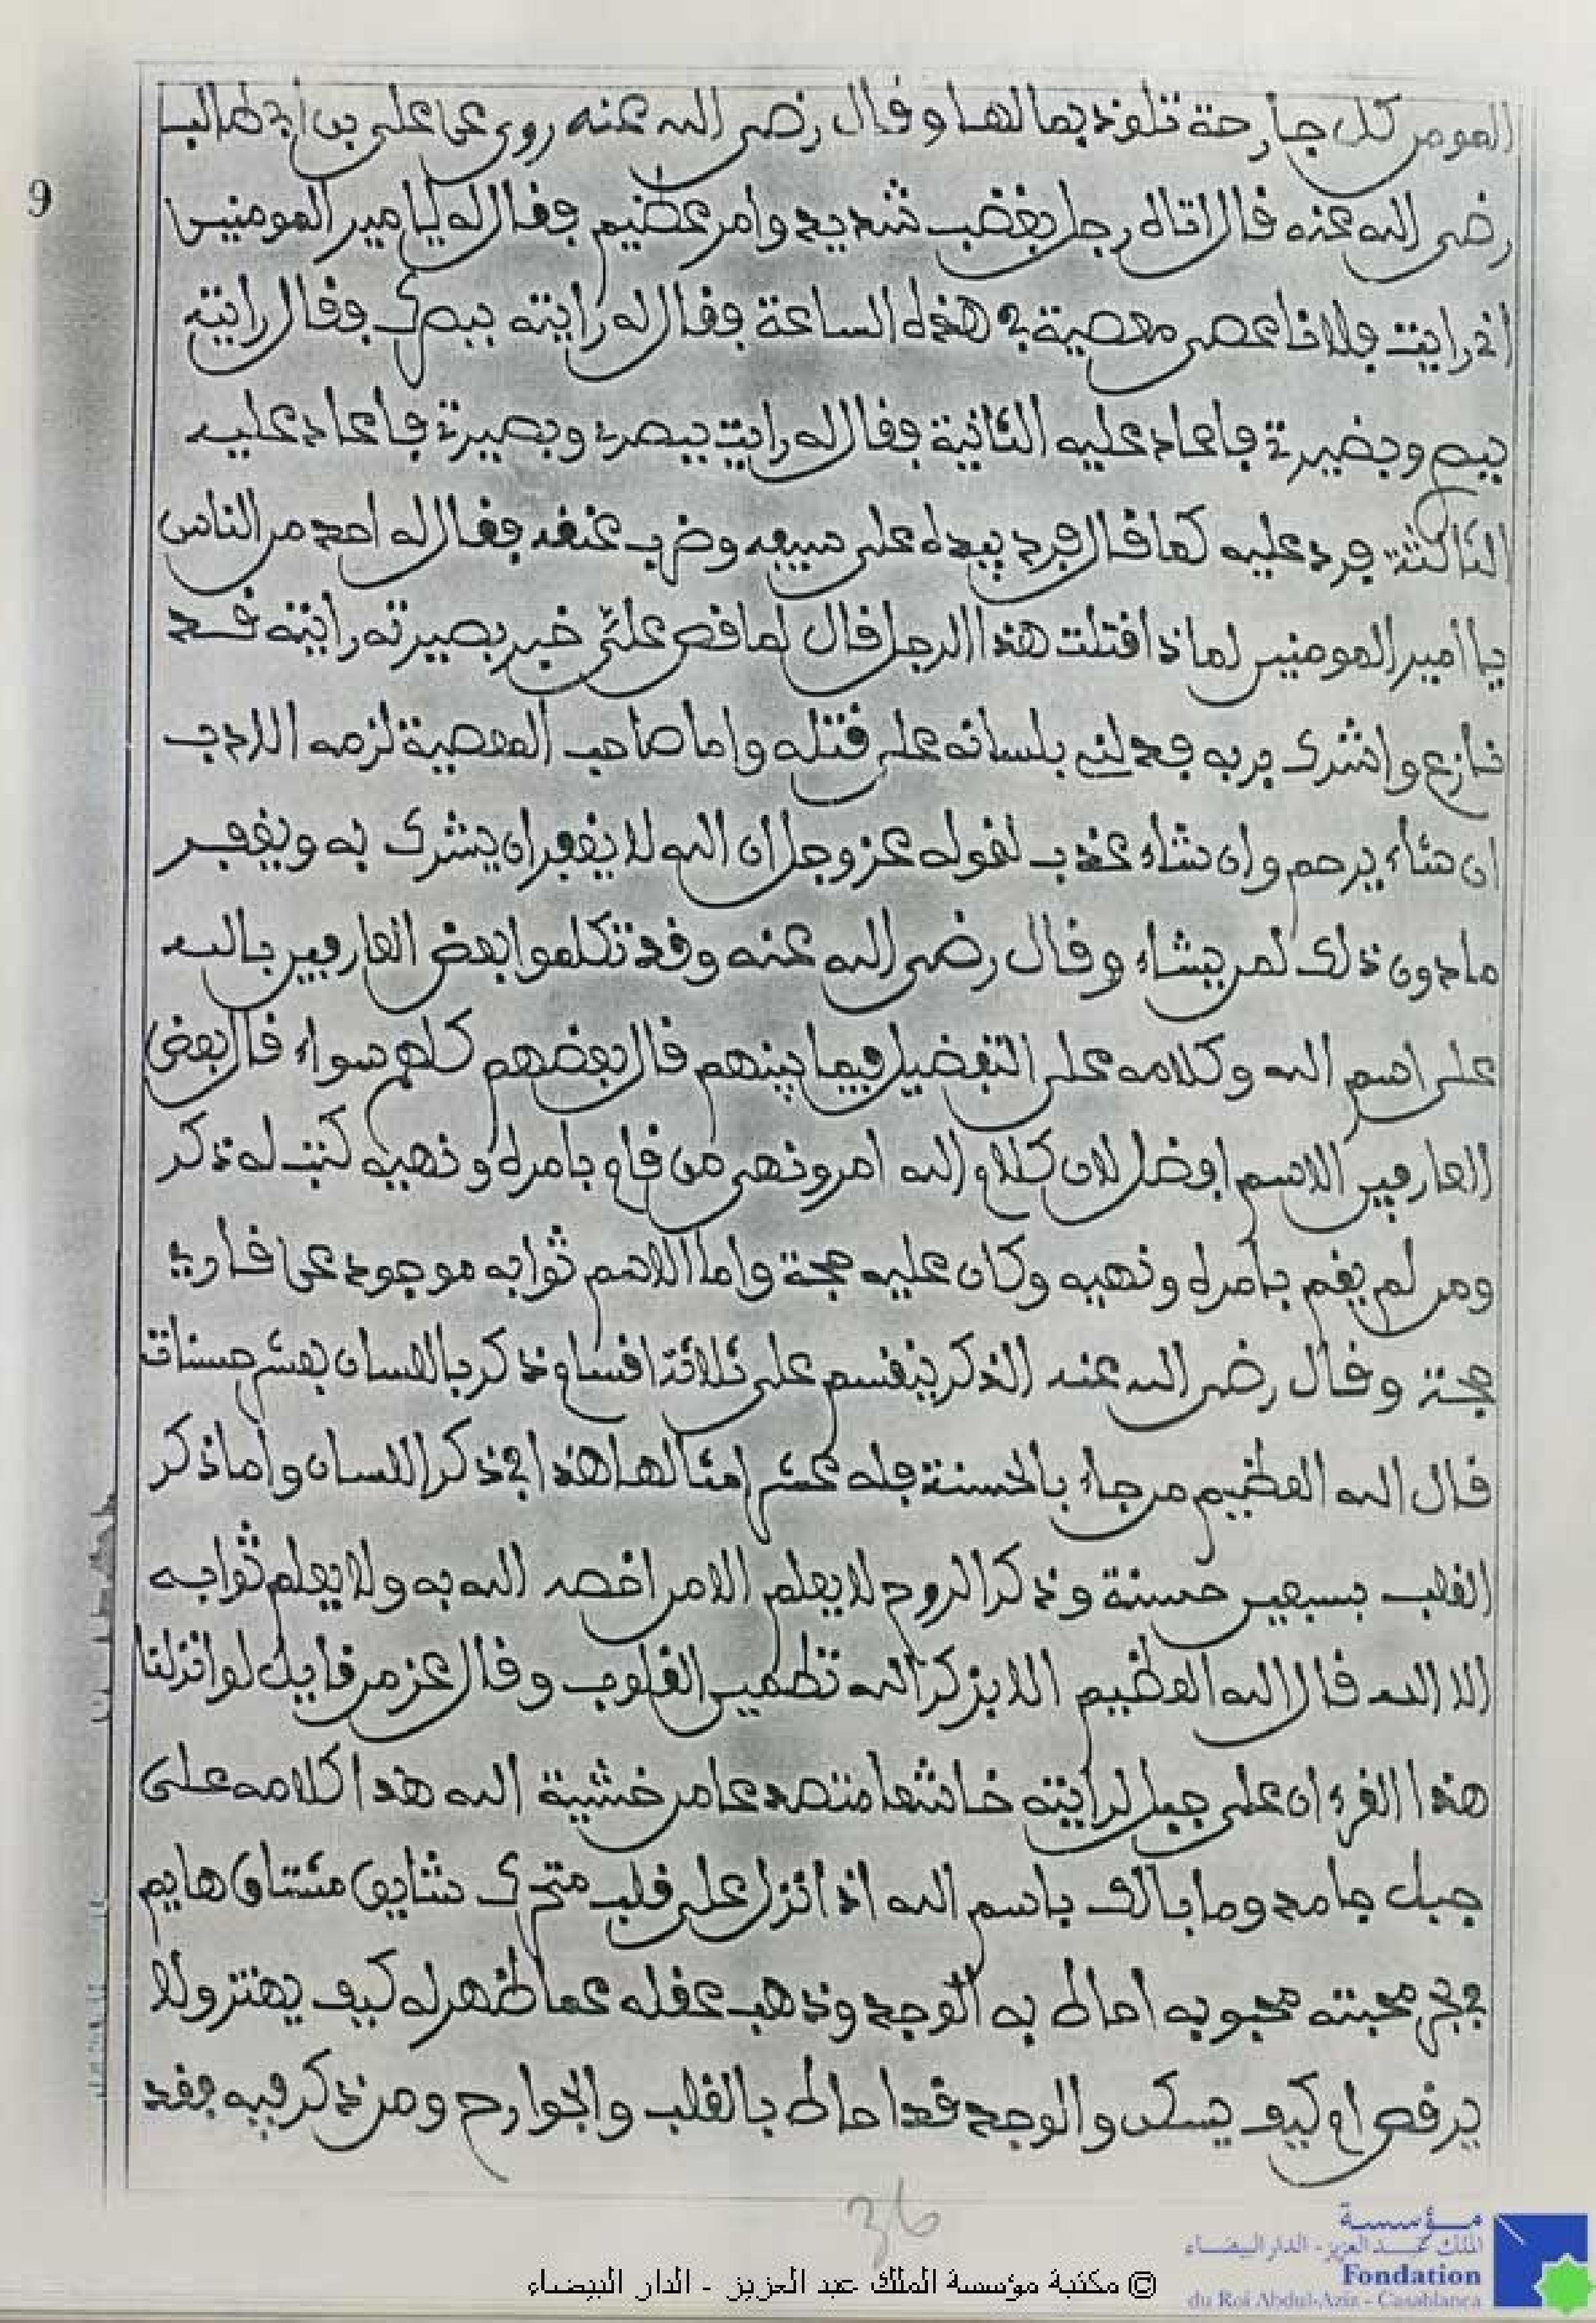 المومن كل جارحة تلوذ بمالها وقال رضى الله عنه روى عن على بن ابى طالب
9
رضى الله عنه قال اتاه رجل بغضب شديد وامر عظيم فقال له يا امير المومنين
انى رايت فلانا عصى معصية في هذه الساعة فقال له رايته ببصرك فقال رايته
ببصرى وبصيرة فاعاد عليه الثانية فقال له رايت ببصرى وبصيرة فاعاد عليه
الثالثة فرد عليه كما قال فرد بيده على سيفه وضرب عنقه فقال له احد من الناس
يا امير المومنين لماذا قتلت هذا الرجل قال لما قص على خبر بصيرته رايته قد
نازع واشرك بربه فدلنى بلسانه على قتله واما صاحب المعصية لزمه الادب
ان شاء يرحم وان شاء عذب لقوله عز وجل ان الله لا يغفر ان يشرك به ويغفر
مادون ذلك لمن يشاء وقال رضى الله عنه وقد تكلموا بعض العارفين بالله
على اسم الله وكلامه على التفضيل فيما بينهم قال بعضهم كلهم سواء قال بعض
العارفين الاسم افضل لان كلام الله امر ونهى من قام بامره ونهيه كتب له ذكر
ومن لم يقم بامره ونهيه وكان عليه حجة واما الاسم ثوابه موجود عن قارئ
حجة وقال رضى الله عنه الذكر ينقسم على ثلاثة اقسام ذكر باللسان بعشر حسنات
قال الله العظيم من جاء بالحسنة فله عشر امثالها هذا في ذكر اللسان واما ذكر
القلب بسبعين حسنة وذكر الروح لا يعلم الا من اخصه الله به ولا يعلم ثوابه
الا الله قال الله العظيم الا بذكر الله تطمين القلوب وقال عز من قايل لو انزلنا
هذا القرءان على جبل لرايته خاشعا متصدعا من خشية الله هذا كلامه على
جبل جامد وما بالك باسم الله اذا نزل على قلب متحرك شايق مشتاق هايم
في بحر محبته محبوبه احاط به الوجد وذهب عقله عما ظهر له كيف يهتز ولا
يرقص ام كيف يسكن والوجد قد احاط بالقلب والجوارح ومن ذكر فيه فقد
36
مؤسسة
الملك عبد العزيز - الدار البيضاء
Fondation
du Roi Abdul-Aziz - Casablanca
© مكتبة مؤسسة الملك عبد العزيز - الدار البيضاء